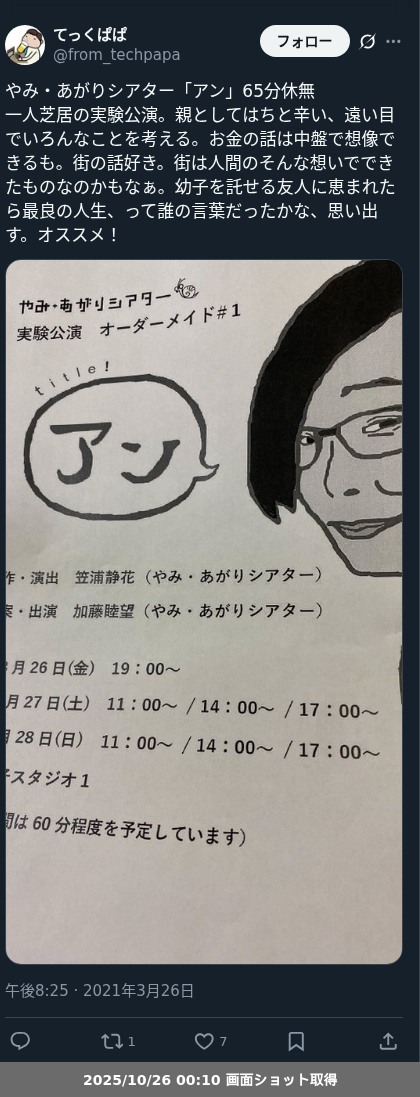 てっくぱぱ
@from_techpapa
フォロー
やみ・あがりシアター「アン」65分休無
一人芝居の実験公演。親としてはちと辛い、遠い目
でいろんなことを考える。お金の話は中盤で想像で
きるも。街の話好き。街は人間のそんな想いででき
たものなのかもなぁ。幼子を託せる友人に恵まれた
ら最良の人生、って誰の言葉だったかな、思い出
す。オススメ！
やみ・あがりシアター
実験公演 オーダーメイド#1
title!
アン
作・演出 笠浦静花（やみ・あがりシアター）
案・出演 加藤睦望（やみ・あがりシアター）
月26日(金) 19：00～
月27日(土) 11：00～ / 14：00～ / 17：00～
月28日(日) 11：00～ / 14：00～ / 17：00～
スタジオ1
間は60分程度を予定しています）
午後8:25 · 2021年3月26日
1
7
2025/10/26 00:10 画面ショット取得